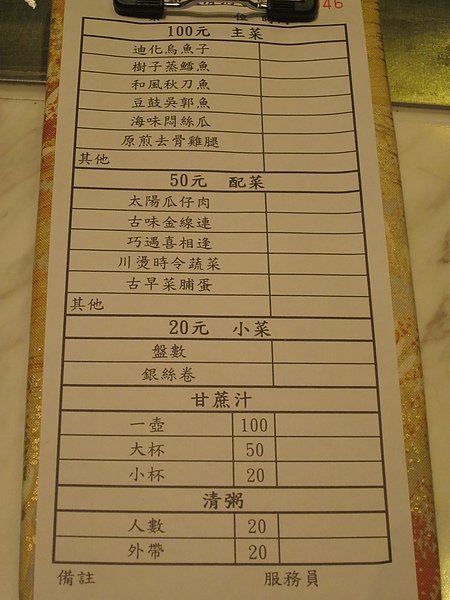 46
100元 主菜
迪化烏魚子
樹子蒸鱈魚
和風秋刀魚
豆鼓吳郭魚
海味悶絲瓜
原煎去骨雞腿
其他
50元 配菜
太陽瓜仔肉
古味金線連
巧遇喜相逢
川燙時令蔬菜
古早菜脯蛋
其他
20元 小菜
盤數
銀絲卷
甘蔗汁
一壺 100
大杯 50
小杯 20
清粥
人數 20
外帶 20
備註 服務員